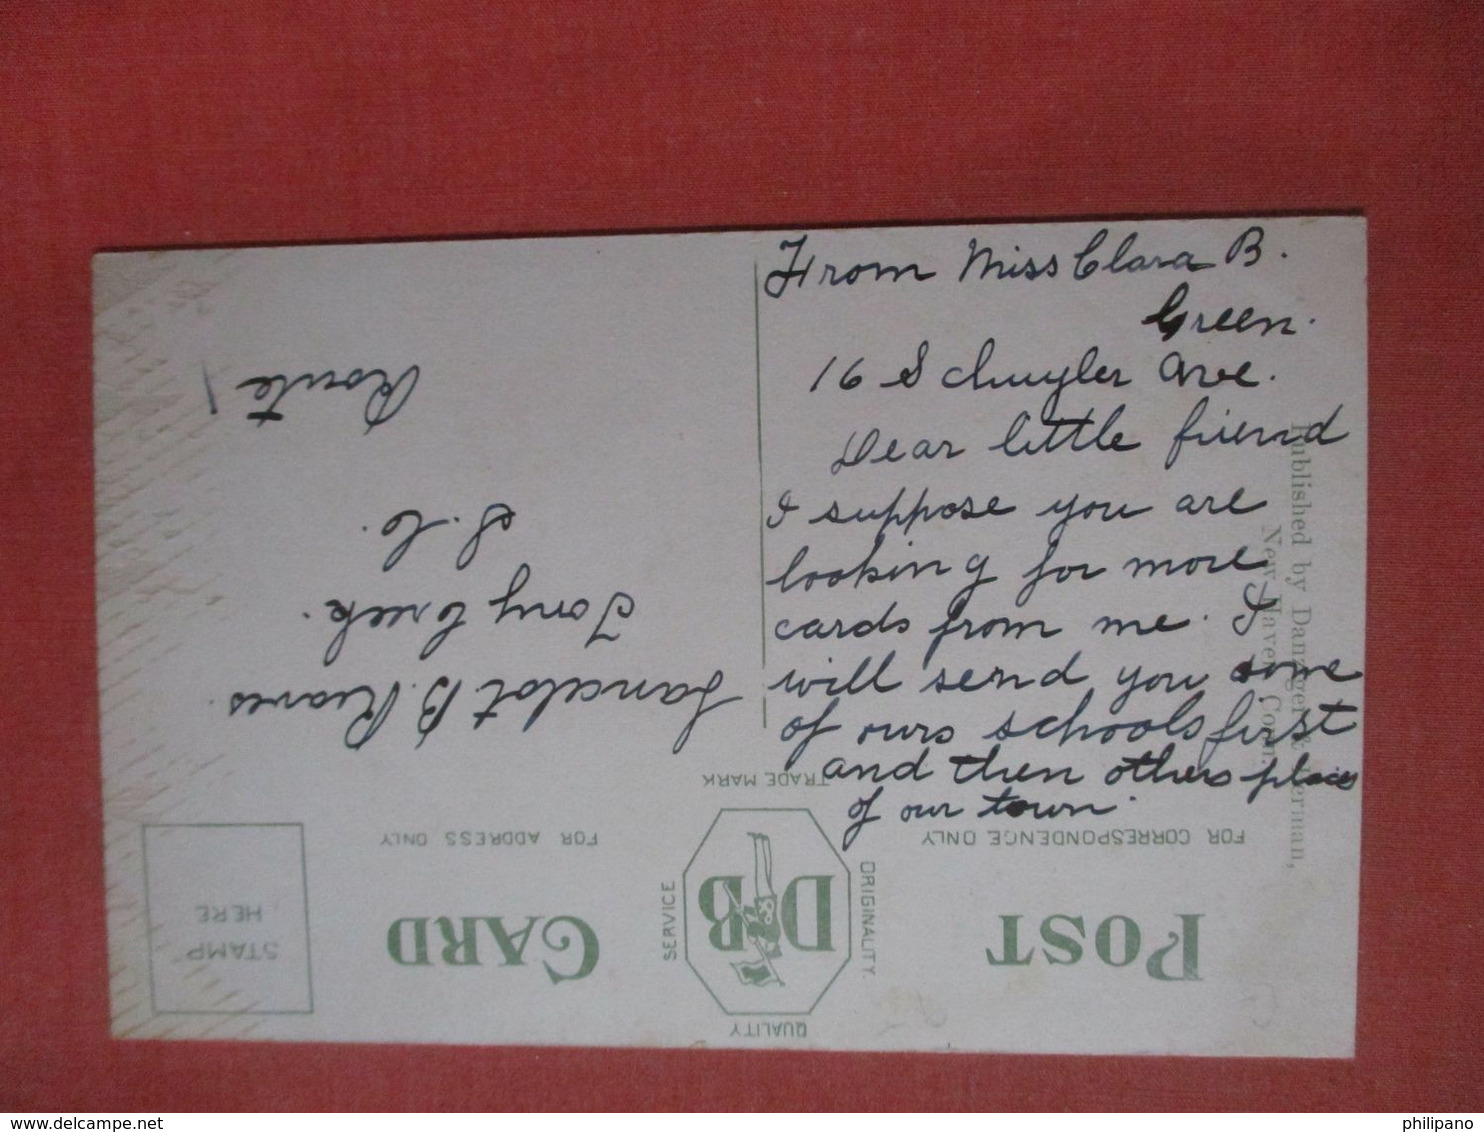 From Miss Clara B.
Green.
16 Schuyler Ave.
Dear little friend
I suppose you are
looking for more
cards from me. I
will send you some
of ours schools first
and then others places
of our town.
Lancelot B. Reaves.
Tony Creek.
S.C.
Route 1
POST CARD
FOR CORRESPONDENCE ONLY
FOR ADDRESS ONLY
TRADE MARK
QUALITY
ORIGINALITY.
SERVICE
D B
STAMP
HERE
Published by Danziger & Berman,
New Haven, Conn.
delcampe.net
philipano